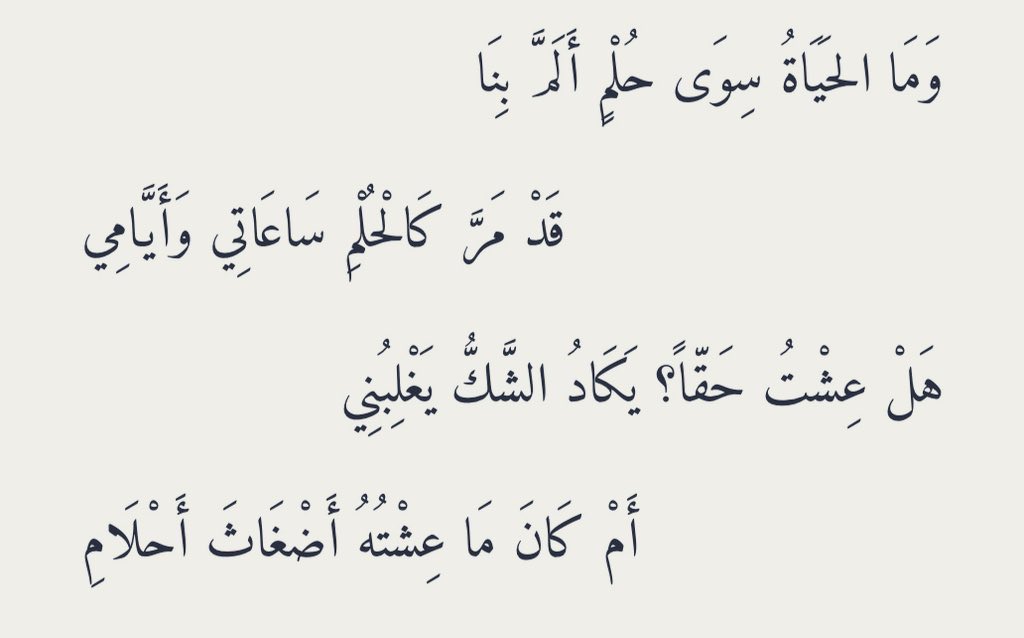 وَمَا الحَيَاةُ سِوَى حُلْمٍ أَلَمَّ بِنَا
قَدْ مَرَّ كَالْحُلْمِ سَاعَاتِي وَأَيَّامِي
هَلْ عِشْتُ حَقّاً؟ يَكَادُ الشَّكُّ يَغْلِبُنِي
أَمْ كَانَ مَا عِشْتُهُ أَضْغَاثَ أَحْلَامِ